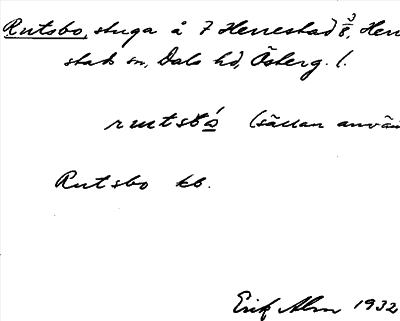 Rutsbo, stuga å 7 Herrestad 3/8, Herr
stads sn, Dals hd, Österg. l.
rutsbo (sällan använ
Rutsbo kb.
Erik Alm 1932